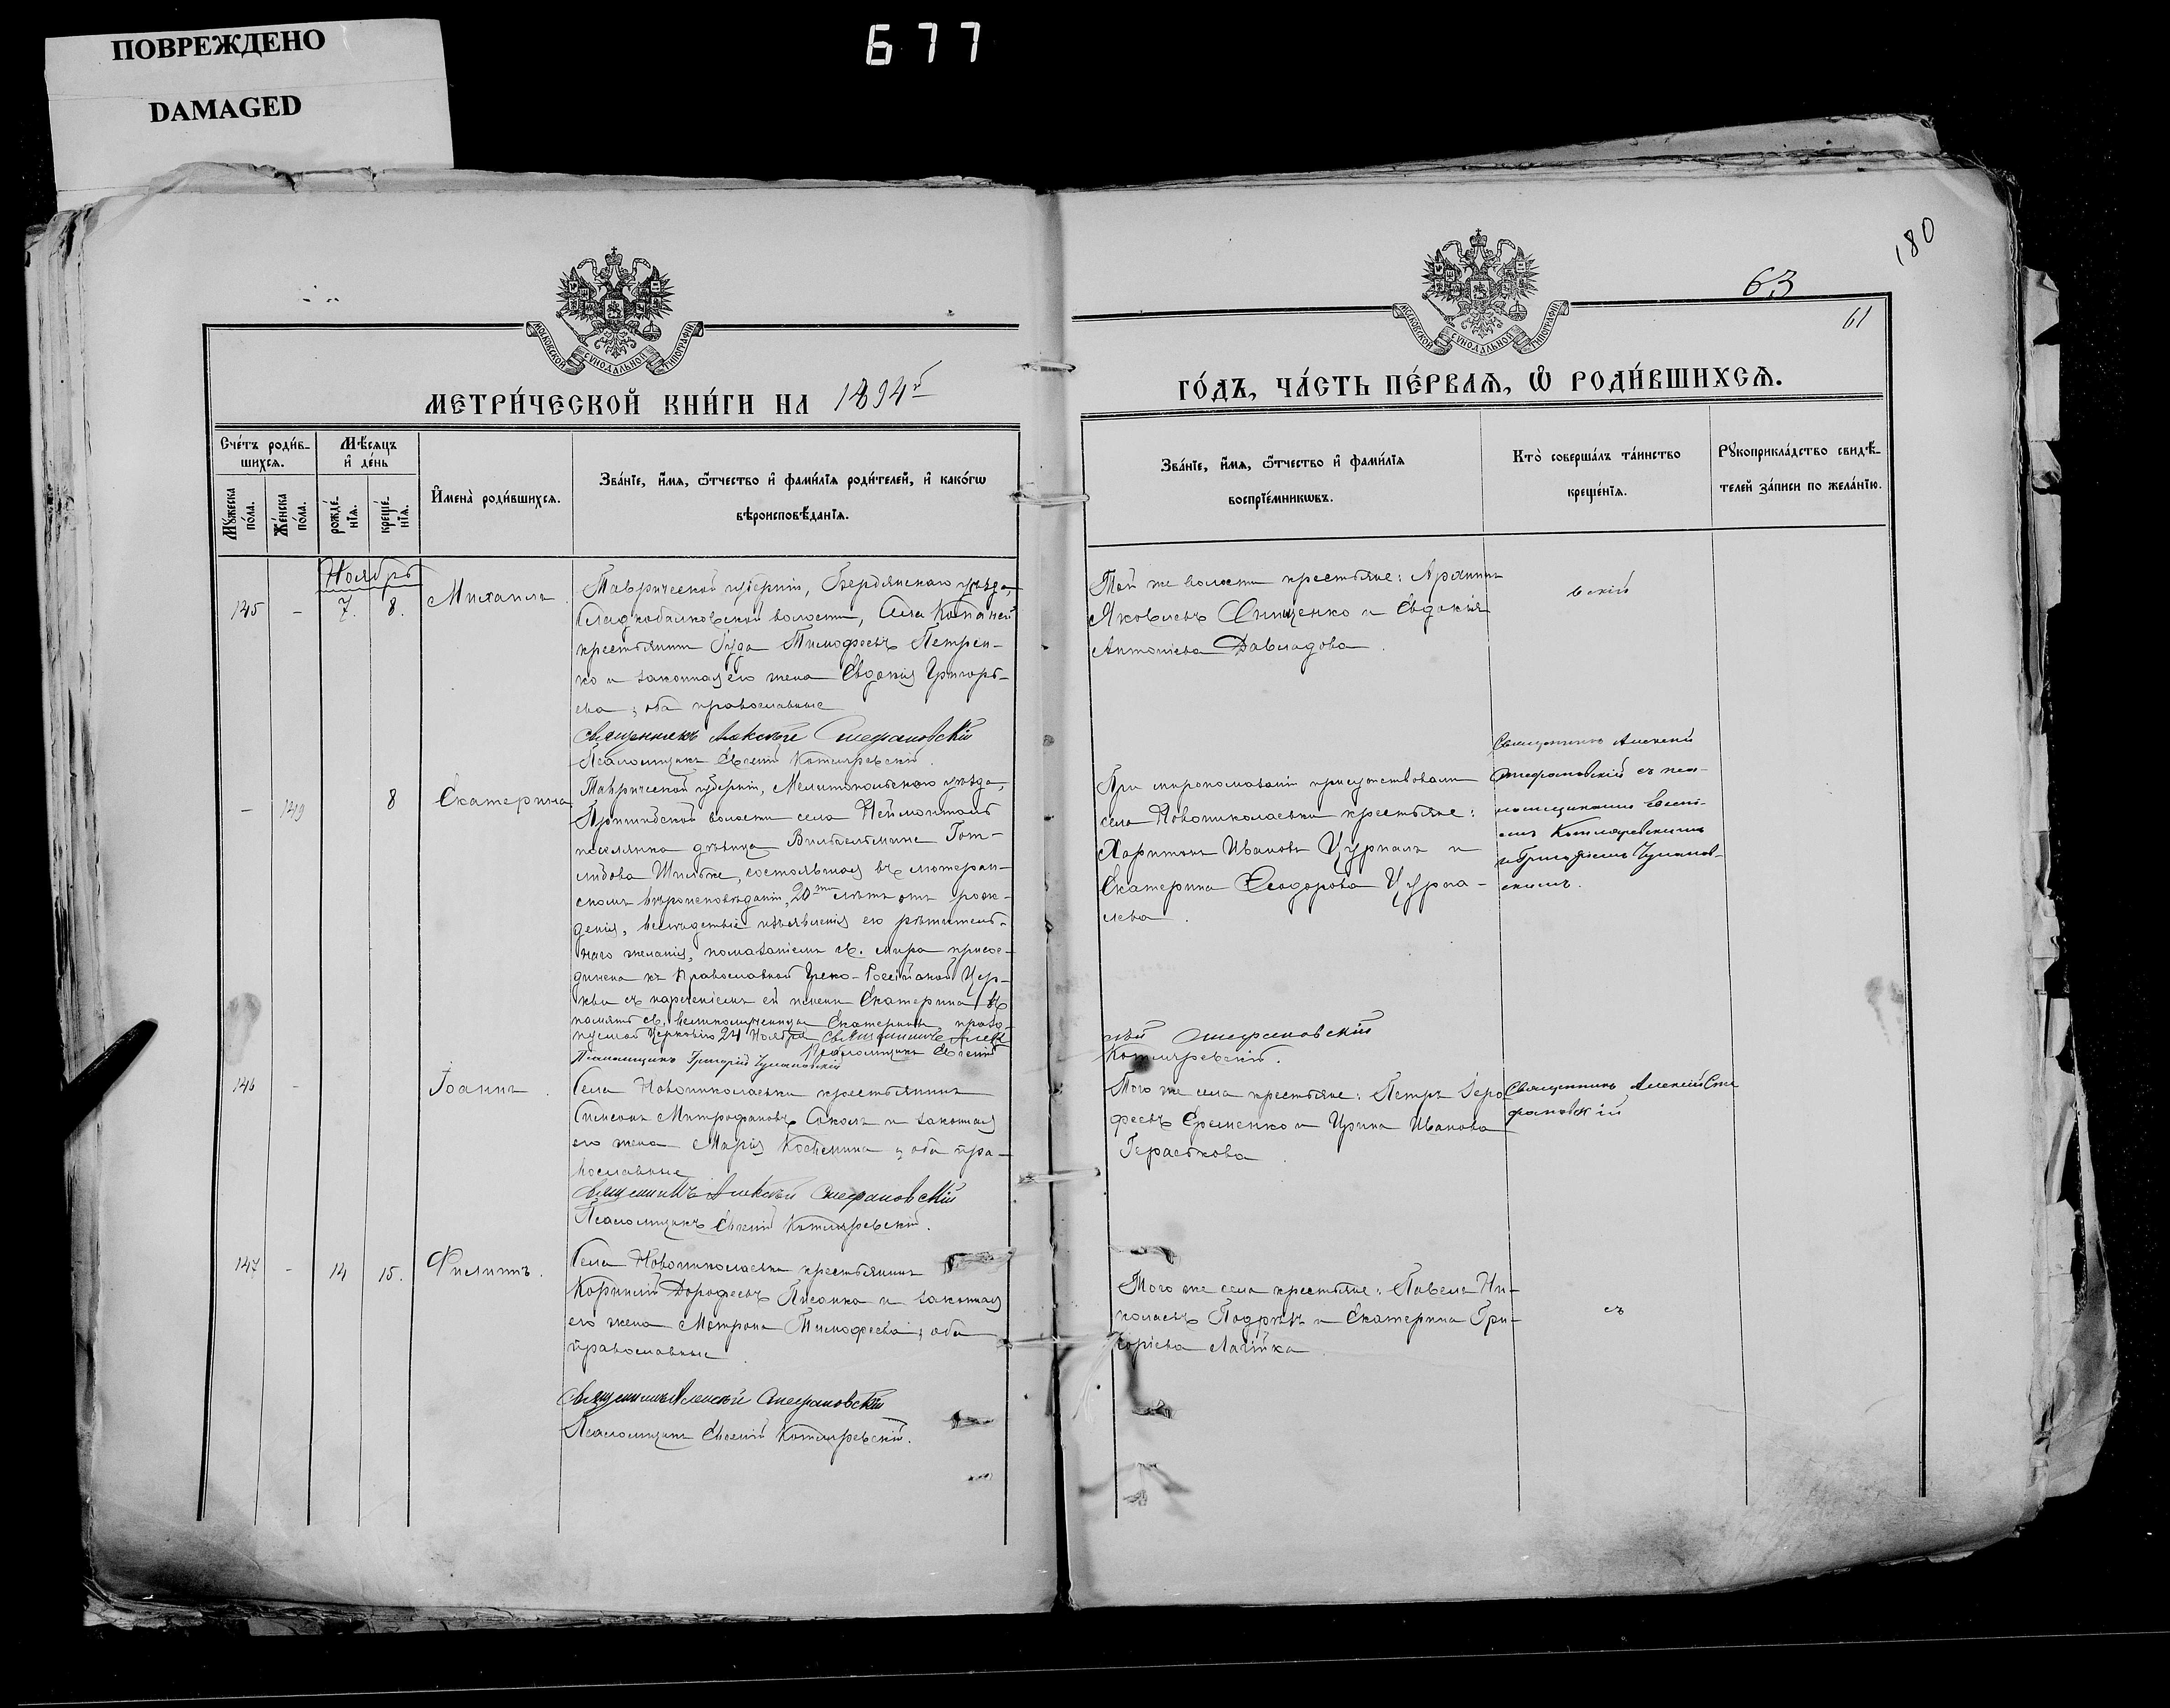 ПОВРЕЖДЕНО
DAMAGED
677
180
63
61
МОСКОВСКОЙ СУНОДАЛЬНОЙ ТИПОГРАФІИ
МОСКОВСКОЙ СУНОДАЛЬНОЙ ТИПОГРАФІИ
МЕТРИ́ЧЕСКОЙ КНИ́ГИ НА 1894й
ГО́ДЪ, ЧА́СТЬ ПЕ́РВАѦ, Ѡ҆ РОДИ́ВШИХСѦ.
Сче́тъ роди́вшихсѧ.
Мꙋ́жеска по́ла.
Же́нска по́ла.
Мѣ́сяцъ и҆ де́нь
рожде́нїѧ.
креще́нїѧ.
И҆мена̀ роди́вшихсѧ.
Зва́нїе, и҆́мѧ, ѻ҆́тчество и҆ фами́лїѧ роди́телей, и҆ како́гѡ
вѣроисповѣ́данїѧ.
Зва́нїе, и҆́мѧ, ѻ҆́тчество и҆ фами́лїѧ
воспрїе́мникѡвъ.
Кто̀ соверша́лъ та́инство
креще́нїѧ.
Рꙋкоприкла́дство свидѣ́-
телей за́писи по жела́нїю.
Ноябрь
145 - 7. 8. Михаилъ.
Таврической губерніи, Бердянскаго уѣзда,
Сладкобалковской волости, села
крестьянинъ Іуда Тимофеевъ Петрен-
ко и законная его жена Евдокія Григорь-
ева; оба православные
Священникъ Алексѣй Стефановскій
Псаломщикъ Евгеній Котляревскій.
Той же волости крестьяне:
Яковлевъ Онищенко и Евдокія
Антоніева Давладова.
вскій
- 149 8 Екатерина
Таврической губерніи, Мелитопольскаго уѣзда,
Пришибской волости села Неймонталь
поселянка дѣвица Вильгельмина Гот-
либова Шильке, состоявшая въ лютеран-
скомъ вѣроисповѣданіи, 20ти лѣтъ отъ рож-
денія, вслѣдствіе изъявленія ею рѣшитель-
наго желанія, помазаніемъ св. мира присое-
динена къ Православной Греко-Россійской Цер-
кви съ нареченіемъ ей имени Екатерина въ
память св. великомученицы Екатерины, празд-
нуемой Церковію 24 Ноября Священникъ Алек
Псаломщикъ Григорій Чулановскій
Псаломщикъ Евгеній
При миропомазаніи присутствовали
села Новониколаевки крестьяне:
Харитонъ Ивановъ Цурпалъ и
Екатерина Феодорова Цурпа-
лева.
сѣй Стефановскій
Котляревскій.
Священникъ Алексѣй
Стефановскій съ пса-
ломщиками Евгені-
емъ Котляревскимъ
и Григоріемъ Чуланов-
скимъ.
146 - Іоаннъ.
Села Новониколаевки крестьянинъ
Симеонъ Митрофановъ Соколъ и законная
его жена Марія Косьмина; оба пра-
вославные
Священникъ Алексѣй Стефановскій
Псаломщикъ Евгеній Котляревскій.
Того же села крестьяне: Петръ Іеро
феевъ Еременко и Ирина Иванова
Гераськова.
Священникъ Алексѣй Сте
фановскій
147 - 14 15. Филиппъ.
Села Новониколаевки крестьянинъ
Корнилій Дорофеевъ Писанка и законная
его жена Матрона Тимофеева; оба
православные.
Священникъ Алексѣй Стефановскій
Псаломщикъ Евгеній Котляревскій.
Того же села крестьяне: Павелъ Ни-
колаевъ Подрѣзъ и Екатерина Гри-
горіева
съ